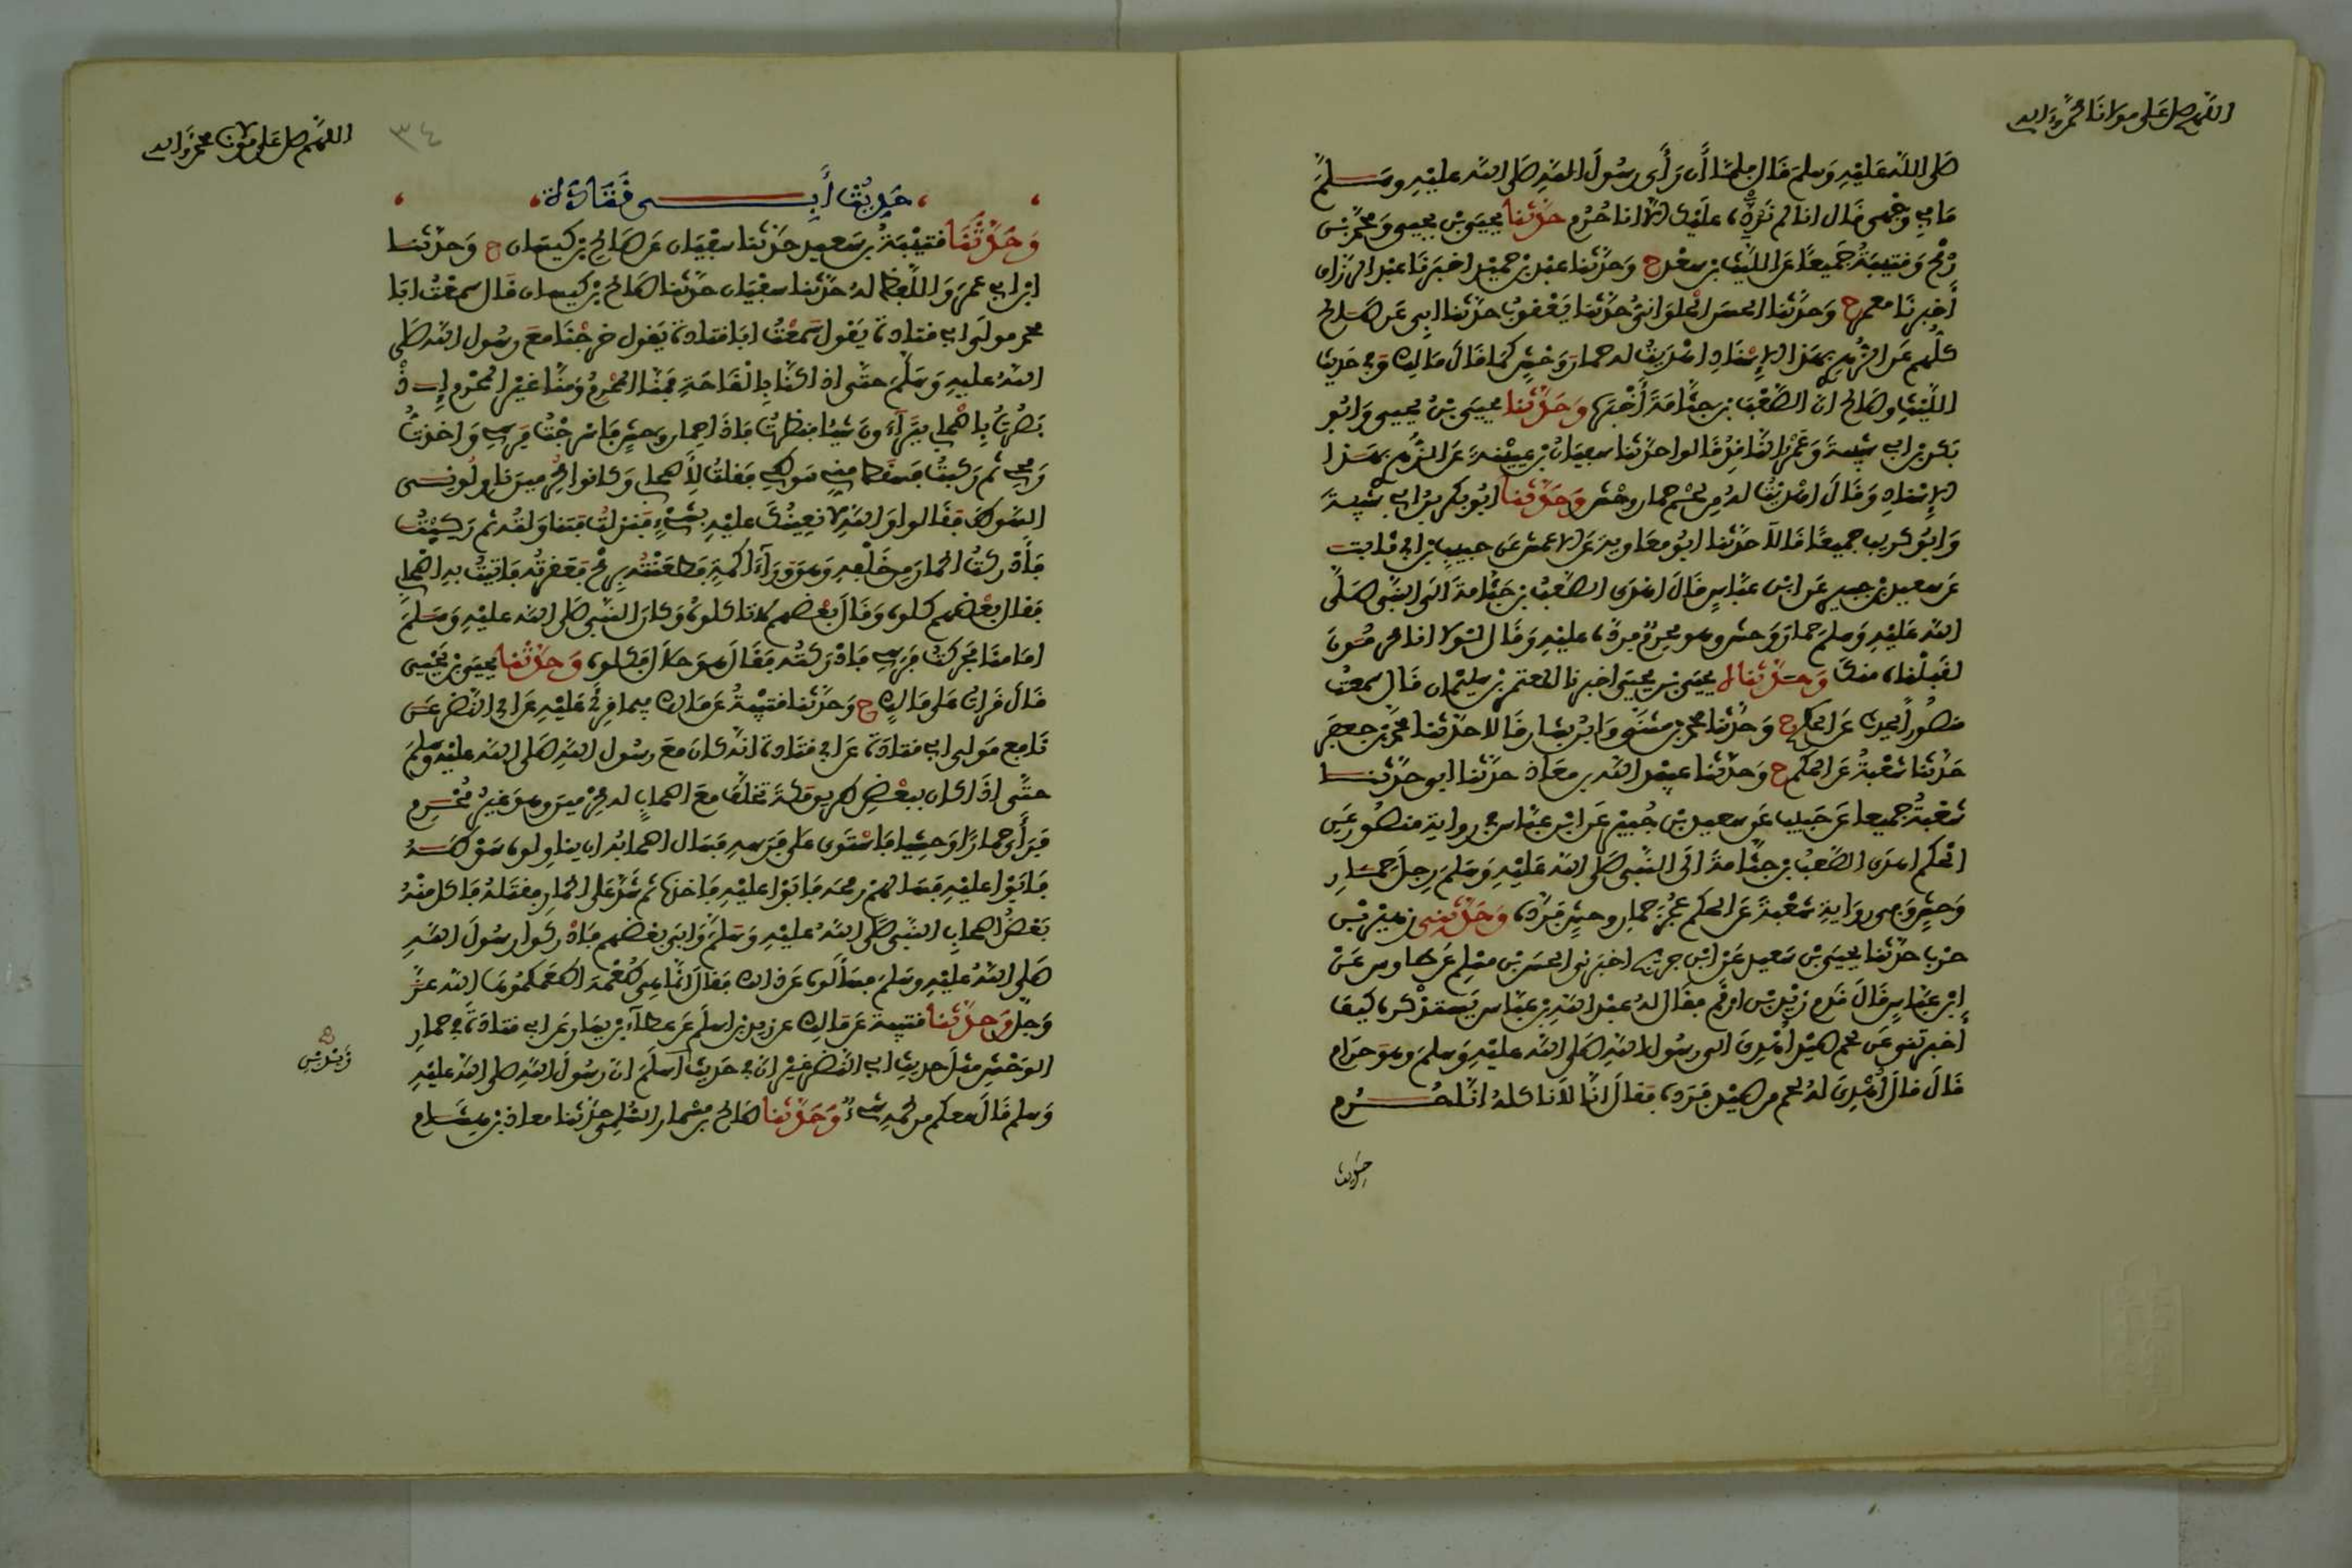 اللهم صل على مولانا محمد وآله
صلى الله عليه وسلم قال فلما أن رأى رسول الله صلى الله عليه وسلم
ما في وجهي قال انا لم نرده عليك الا انا حُرُم حدثنا يحيى بن يحيى ومحمد بن
رمح وقتيبة جميعا عن الليث بن سعد ح وحدثنا عبد بن حميد اخبرنا عبد الرزاق
أخبرنا معمر ح وحدثنا الحسن الحلواني حدثنا يعقوب حدثنا ابي عن صالح
كلهم عن الزهري بهذا الإسناد اهديت له حمار وحش كما قال مالك وفي حديث
الليث وصالح ان الصعب بن جثامة أخبره وحدثنا يحيى بن يحيى وابو
بكر بن ابي شيبة وعمرو الناقد قالوا حدثنا سفيان بن عيينة عن الزهري بهذا
الإسناد وقال اهديت له من لحم حمار وحش وحدثنا ابو بكر بن ابي شيبة
وابو كريب جميعا قالا حدثنا ابو معاوية عن الاعمش عن حبيب بن ابي ثابت
عن سعيد بن جبير عن ابن عباس قال اهدى الصعب بن جثامة الى النبي صلى
الله عليه وسلم حمار وحش وهو محرم فرده عليه وقال لولا انا محرمون
لقبلناه منك وحدثناه يحيى بن يحيى اخبرنا المعتمر بن سليمان قال سمعت
منصورا يحدث عن الحكم ح وحدثنا محمد بن مثنى وابن بشار قالا حدثنا محمد بن جعفر
حدثنا شعبة عن الحكم ح وحدثنا عبيد الله بن معاذ حدثنا ابي حدثنا
شعبة جميعا عن حبيب عن سعيد بن جبير عن ابن عباس في رواية منصور عن
الحكم اهدى الصعب بن جثامة الى النبي صلى الله عليه وسلم رجل حمار
وحش وفي رواية شعبة عن الحكم عجز حمار وحش فرده وحدثني زهير بن
حرب حدثنا يحيى بن سعيد عن ابن جريج اخبرني الحسن بن مسلم عن طاوس عن
ابن عباس قال قدم زيد بن ارقم فقال له عبد الله بن عباس يستذكره كيف
أخبرتني عن لحم صيد اهدي الى رسول الله صلى الله عليه وسلم وهو حرام
قال قال اهدي له لحم من صيد فرده فقال انا لا ناكله انا حرم
حديث
اللهم صل على مولانا محمد وآله
٣٤
حديث أبي قتادة
وحدثنا قتيبة بن سعيد حدثنا سفيان عن صالح بن كيسان ح وحدثنا
ابن ابي عمر واللفظ له حدثنا سفيان حدثنا صالح بن كيسان قال سمعت ابا
محمد مولى ابي قتادة يقول سمعت ابا قتادة يقول خرجنا مع رسول الله صلى
الله عليه وسلم حتى اذا كنا بالقاحة فمنا المحرم ومنا غير المحرم إذ
بصرت باصحابي يتراءون شيئا فنظرت فاذا حمار وحش فاسرجت فرسي واخذت
رمحي ثم ركبت فسقط مني سوطي فقلت لأصحابي وكانوا محرمين ناولوني
السوط فقالوا والله لا نعينك عليه بشيء فنزلت فتناولته ثم ركبت
فأدركت الحمار من خلفه وهو وراء اكمة فطعنته برمحي فعقرته فاتيت به اصحابي
فقال بعضهم كلوه وقال بعضهم لا تاكلوه وكان النبي صلى الله عليه وسلم
امامنا فحركت فرسي فادركته فقال هو حلال فكلوه وحدثنا يحيى بن يحيى
قال قرات على مالك ح وحدثنا قتيبة عن مالك فيما قرئ عليه عن ابي النضر عن
نافع مولى ابي قتادة عن ابي قتادة انه كان مع رسول الله صلى الله عليه وسلم
حتى اذا كان ببعض طريق مكة تخلف مع اصحاب له محرمين وهو غير محرم
فرأى حمارا وحشيا فاستوى على فرسه فسال اصحابه ان يناولوه سوطه
فابوا عليه فسالهم رمحه فابوا عليه فاخذه ثم شد على الحمار فقتله فاكل منه
بعض اصحاب النبي صلى الله عليه وسلم وابى بعضهم فادركوا رسول الله
صلى الله عليه وسلم فسألوه عن ذلك فقال انما هي طعمة اطعمكموها الله عز
وجل وحدثنا قتيبة عن مالك عن زيد بن اسلم عن عطاء بن يسار عن ابي قتادة في حمار
الوحش مثل حديث ابي النضر غير ان في حديث اسلم ان رسول الله صلى الله عليه
وسلم قال معكم من لحمه شيء وحدثنا صالح بن مسمار السلمي حدثنا معاذ بن هشام
زيد بن